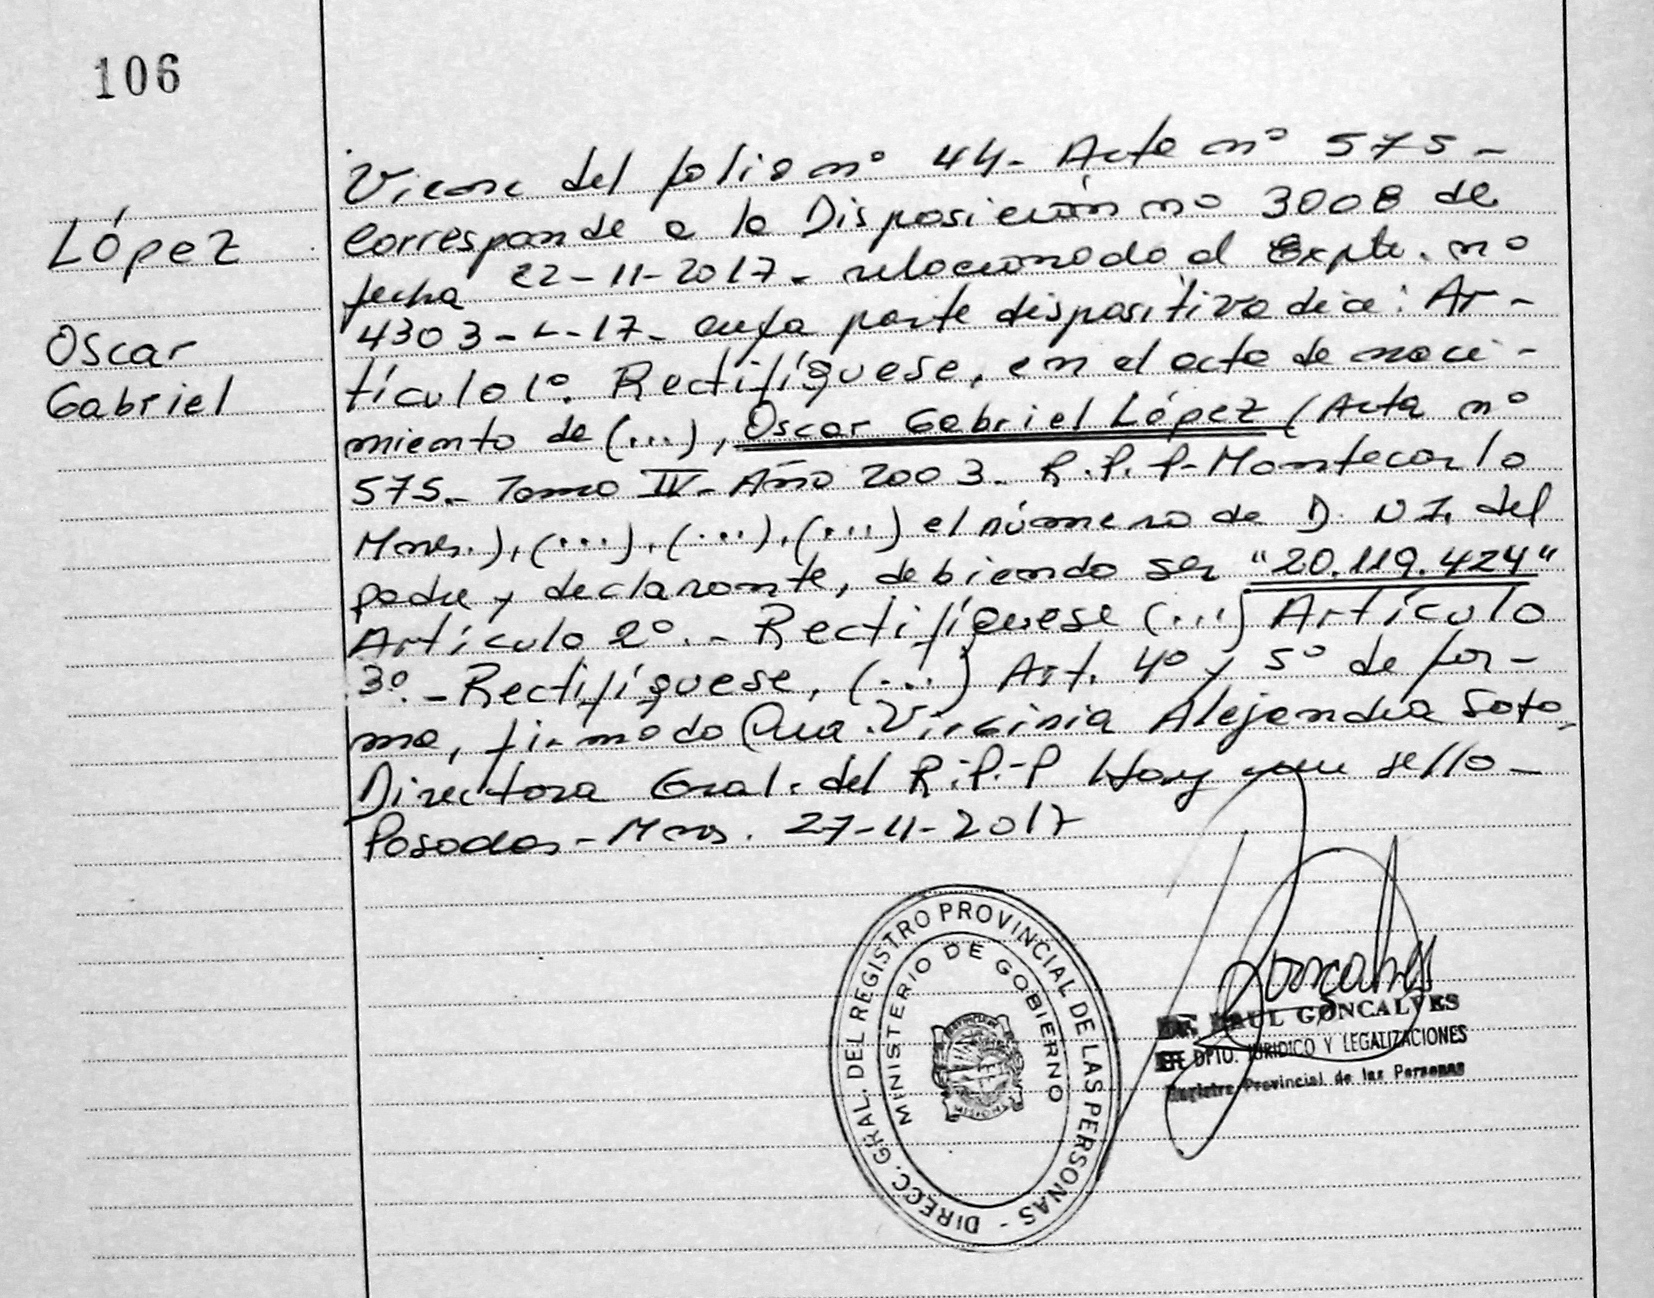 106
López
Oscar
Gabriel
Viene del folio nº 44- Acta nº 575-
Corresponde a la Disposición nº 3008 de
fecha 22-11-2017- relacionado al Expte. nº
4303-L-17- cuya parte dispositiva dice: Ar-
tículo 1º. Rectifíquese, en el acta de naci-
miento de (...), Oscar Gabriel López (Acta nº
575.- Tomo IV- Año 2003- R.P.P- Montecarlo
Mnes.), (...), (...), (...) el número de D.N.I. del
padre y declarante, debiendo ser "20.119.424"
Artículo 2º.- Rectifíquese (...) Artículo
3º.- Rectifíquese, (...) Art. 4º y 5º de for-
ma, firmado Virginia Alejandra Soto,
Directora Gral. del R.P.-P Hay un sello-
Posadas- Mnes. 27-11-2017
DIRECC. GRAL. DEL REGISTRO PROVINCIAL DE LAS PERSONAS -
MINISTERIO DE GOBIERNO
MISIONES
Goncalves
RAUL GONCALVES
DPTO. JURIDICO Y LEGALIZACIONES
Registro Provincial de las Personas